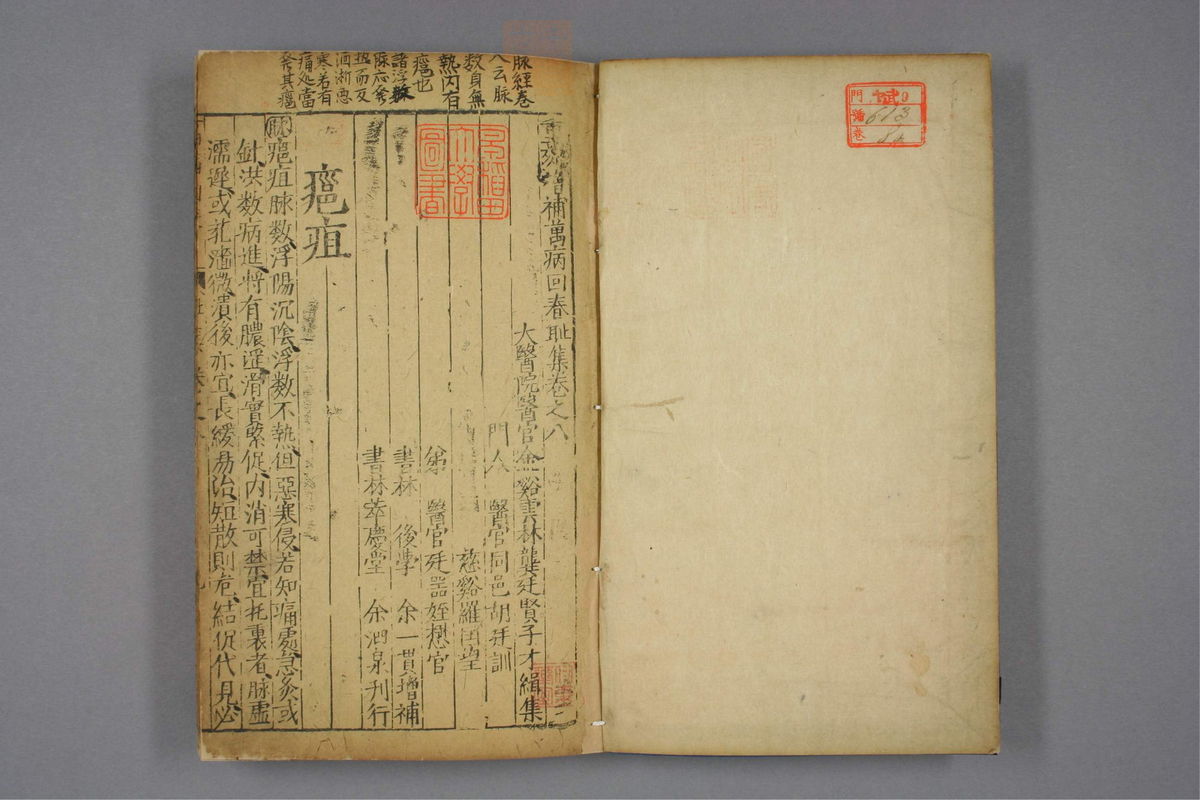 門 號 卷
9
613
脉經卷
云脉
数身無
熱內有
癰也
諸浮数
脉應發
熱而反
洒淅悪
寒若有
痛処當
發其癰
增補萬病回春耻集卷之八
大醫院醫官金谿雲林龔廷賢子才緝集
門人 醫官同邑胡廷訓
慈谿羅 望
弟 醫官廷器姪懋官
書林 後學 余一貫增補
書林萃慶堂 余泗泉刊行
早稲田大學圖書
癰疽
脉 癰疽脉数浮陽沉陰浮数不熱但惡寒侵若知痛處急灸或
針洪数病進将有膿滛滑實緊促内消可禁宜托裏者脉虚
濡遲或芤濇微潰後亦宜長緩易治短散則危結促代見必